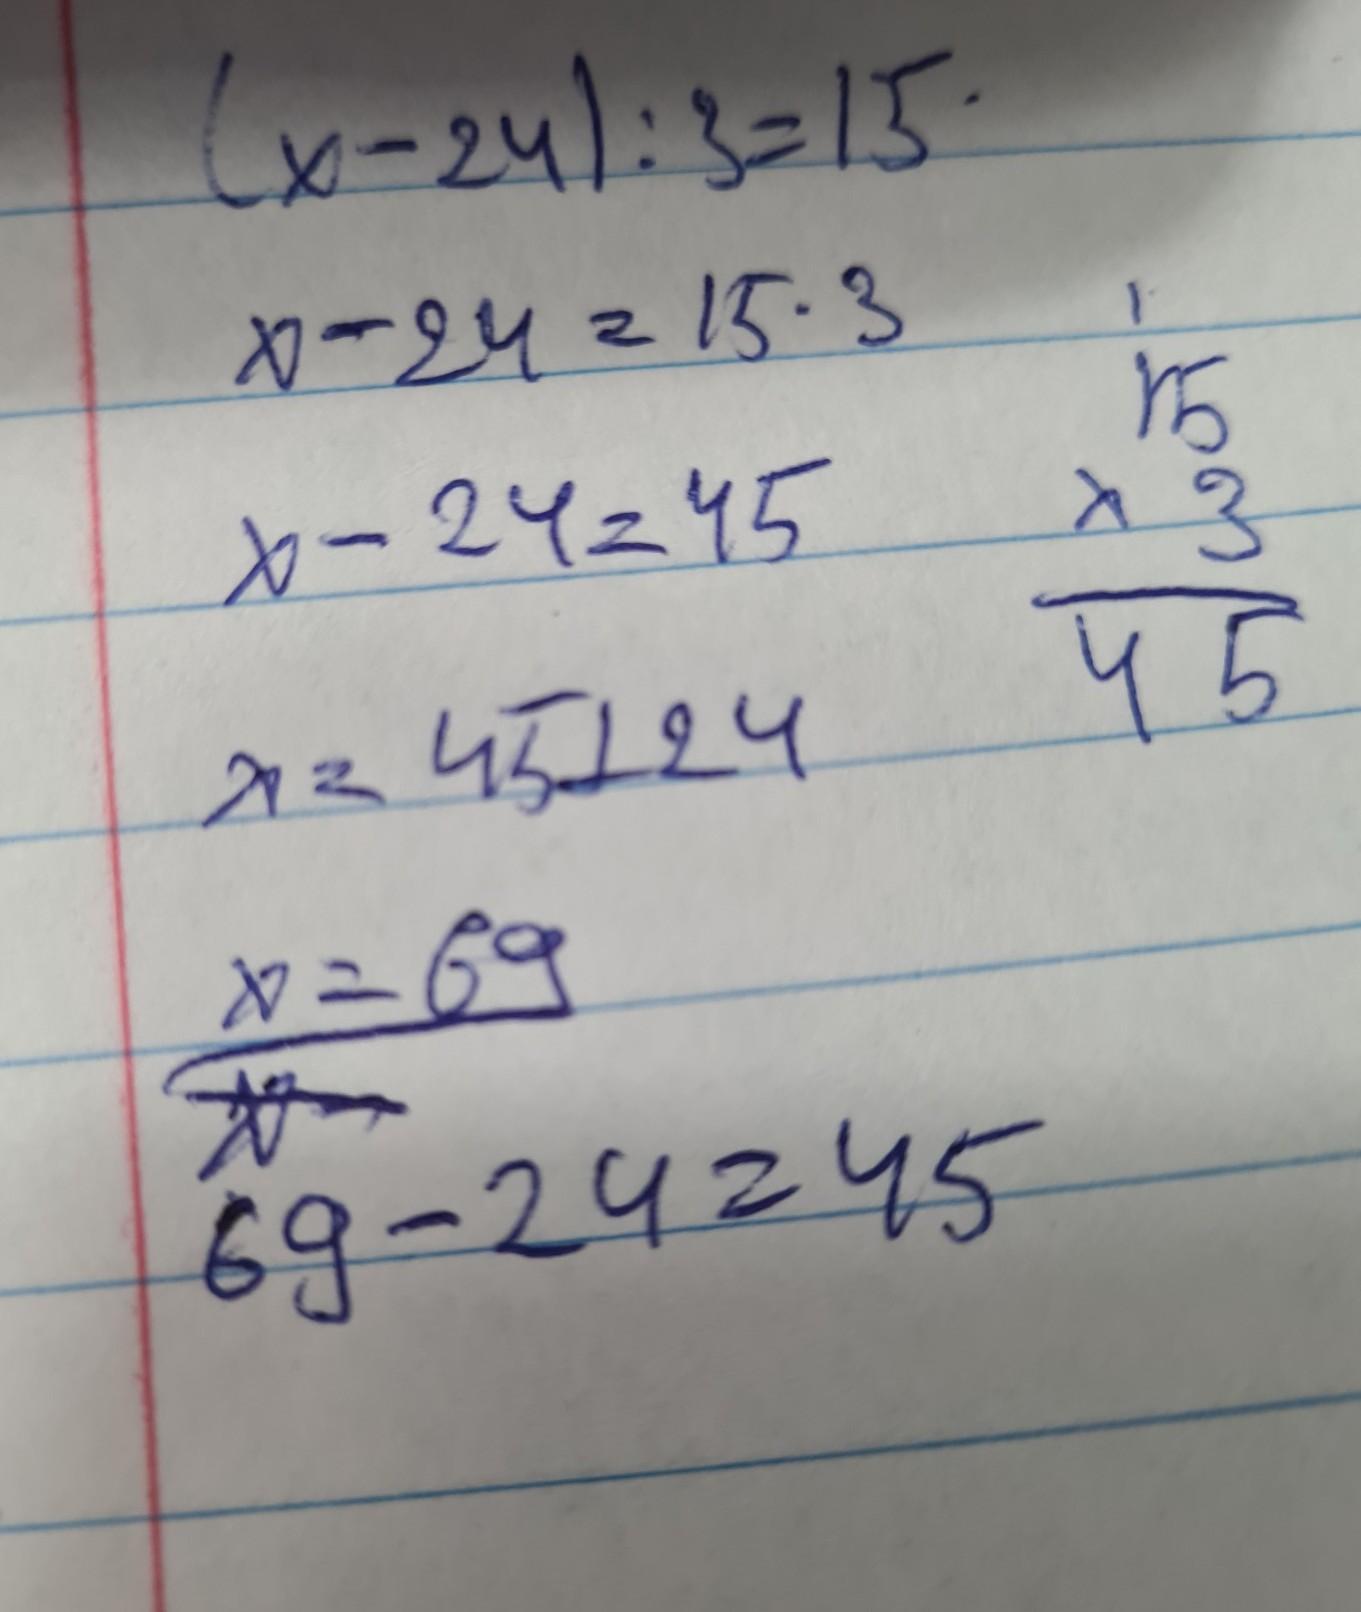 (x-24):3=15.
x-24=15·3
x-24=45
x=45+24
x=69
69-24=45
1
15
x 3
45